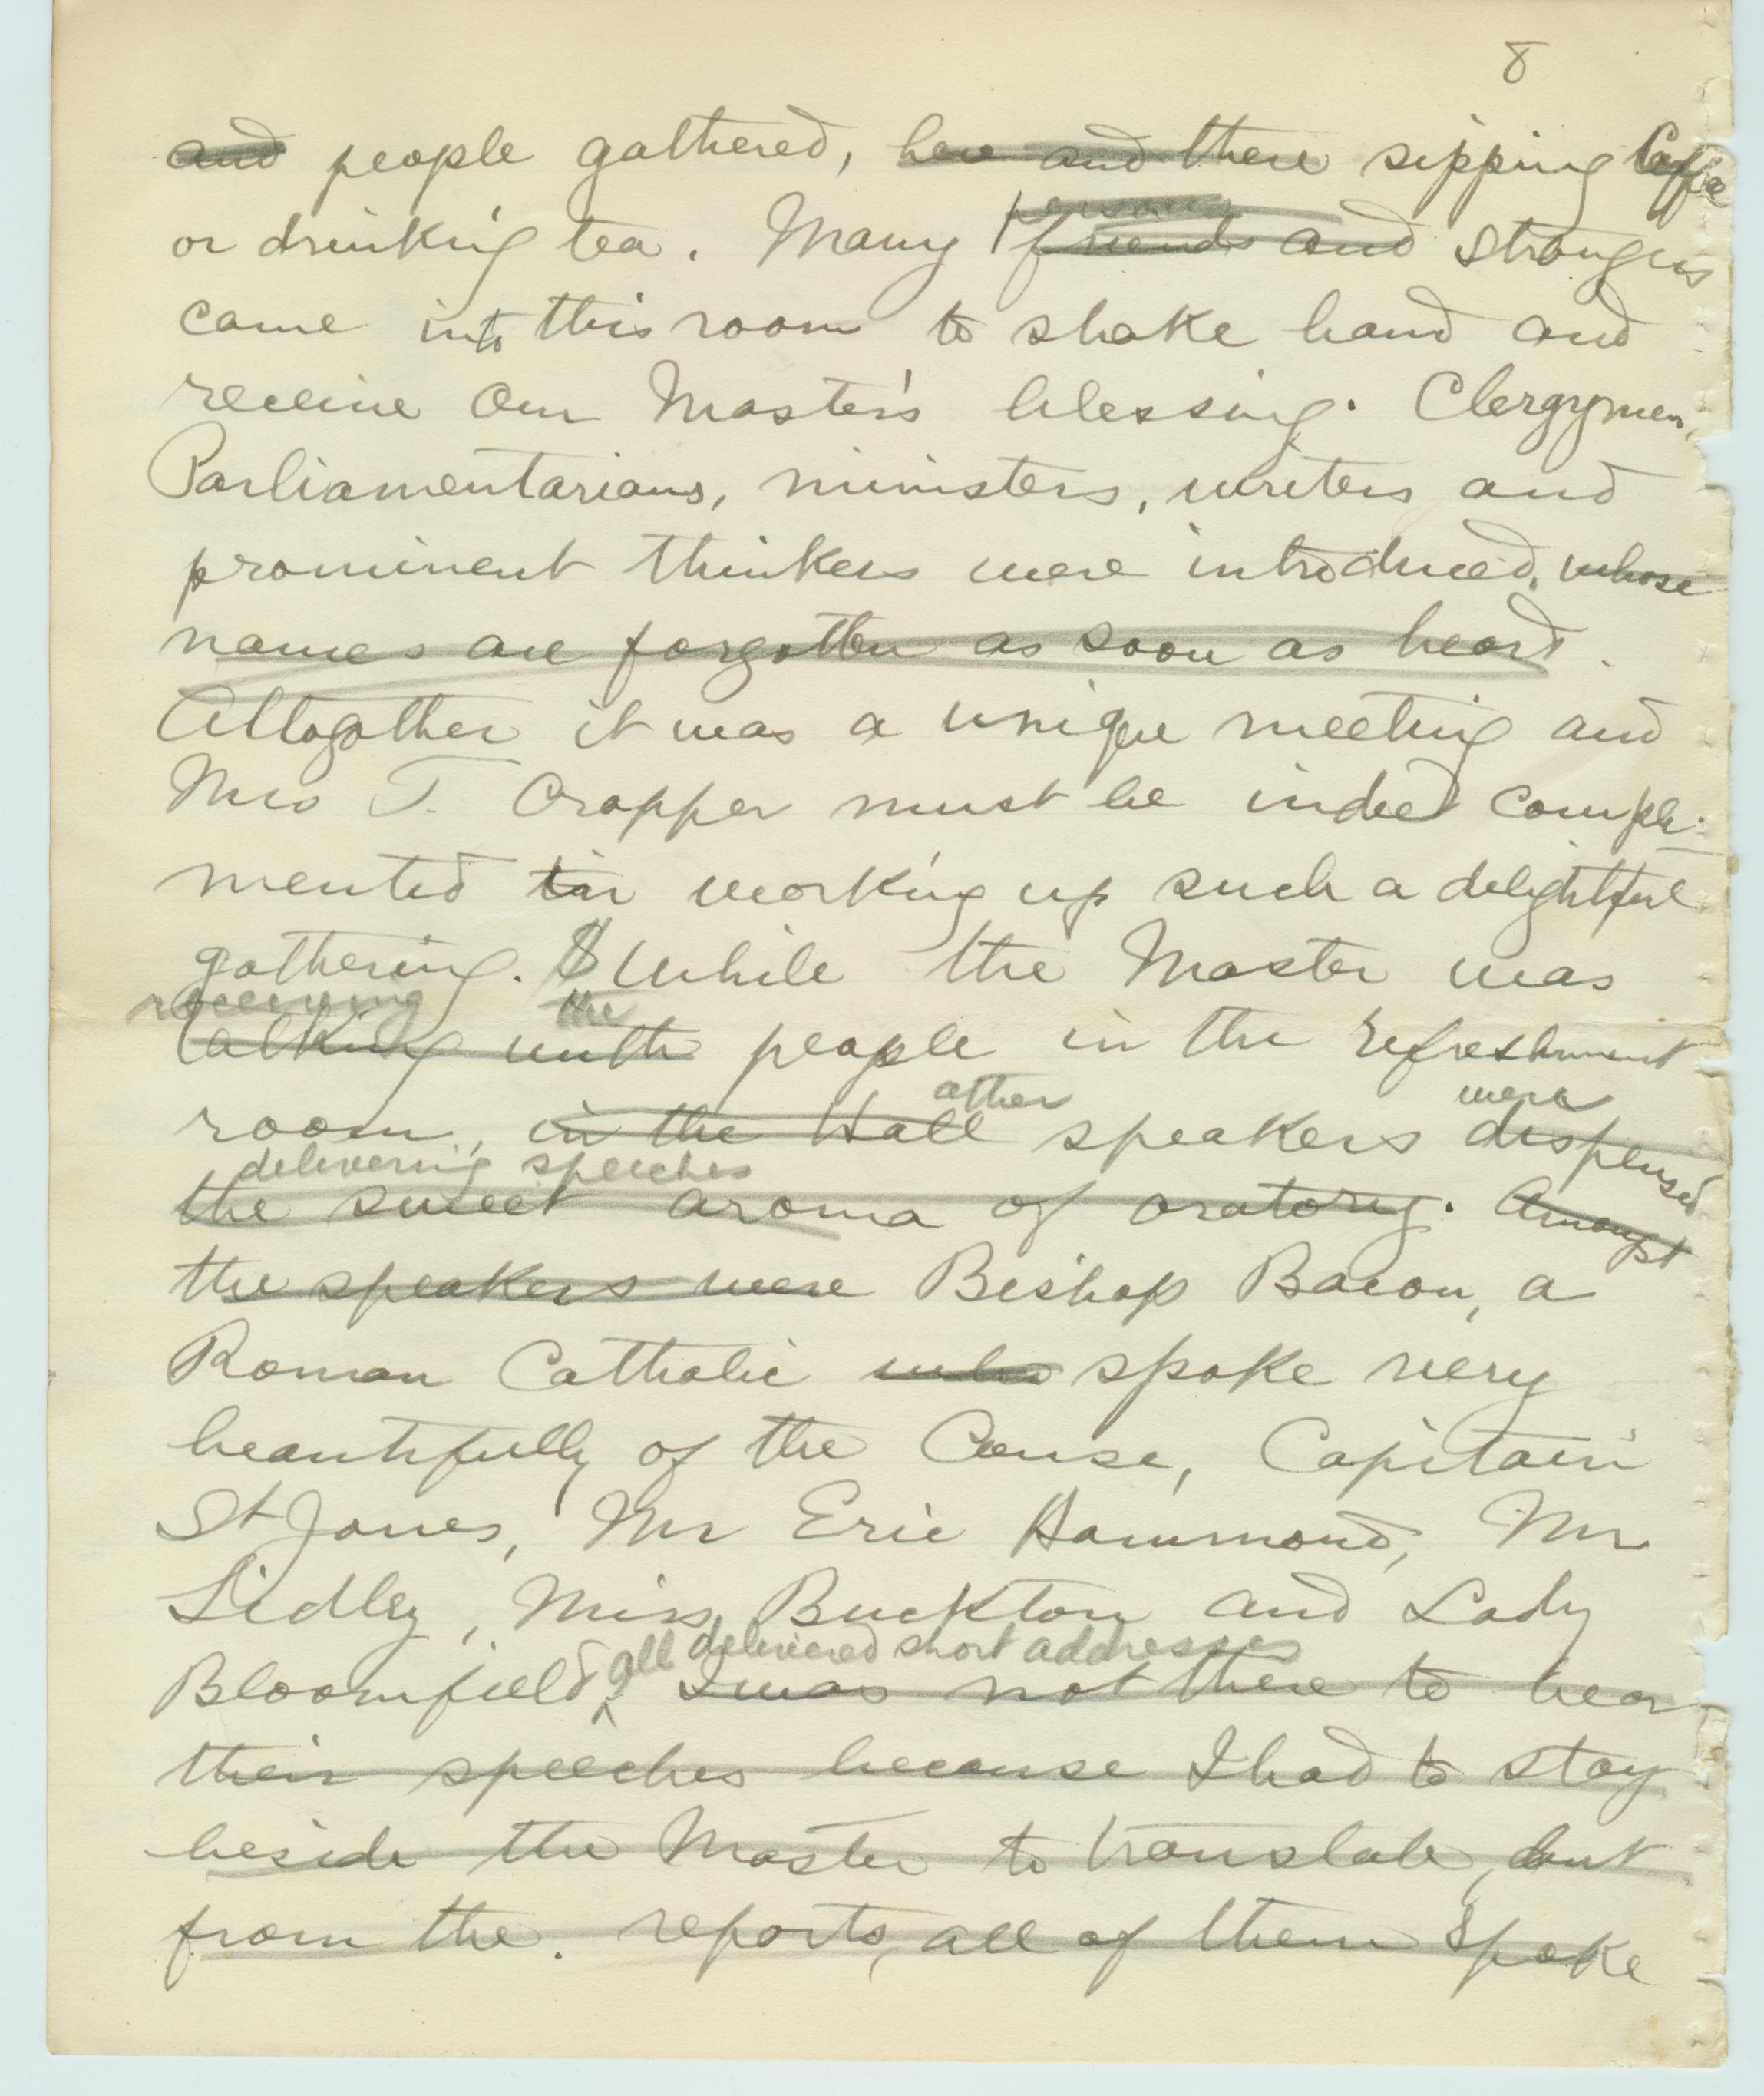 8
and people gathered, here and there sipping Coffee
persons
or drinking tea. Many friends and strangers
came into this room to shake hand and
receive Our Master's blessing. Clergymen,
Parliamentarians, ministers, writers and
prominent thinkers were introduced, whose
names are forgotten as soon as heard.
Altogether it was a unique meeting and
Mrs T. Cropper must be indeed compli-
mented for working up such a delightful
gathering. While the Master was
receiving the
talking with people in the refreshment
other were
room, in the Hall speakers dispensed
delivering speeches
the sweet aroma of oratory. Amongst
the speakers were Bishop Bacon, a
Roman Catholic who spoke very
beautifully of the Cause, Capitain
St Jones, Mr Eric Hammond, Mr
Lidley, Miss Buckton and Lady
all delivered short addresses
Bloomfield. I was not there to hear
their speeches because I had to stay
beside the Master to translate, but
from the. reports, all of them spoke